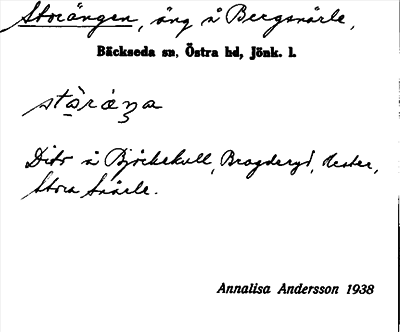 Storängen, äng å Bergsnärle,
Bäckseda sn, Östra hd, Jönk. l.
Dito å Björkekull, Bragderyd, Uester,
Stora Snärle.
Annalisa Andersson 1938